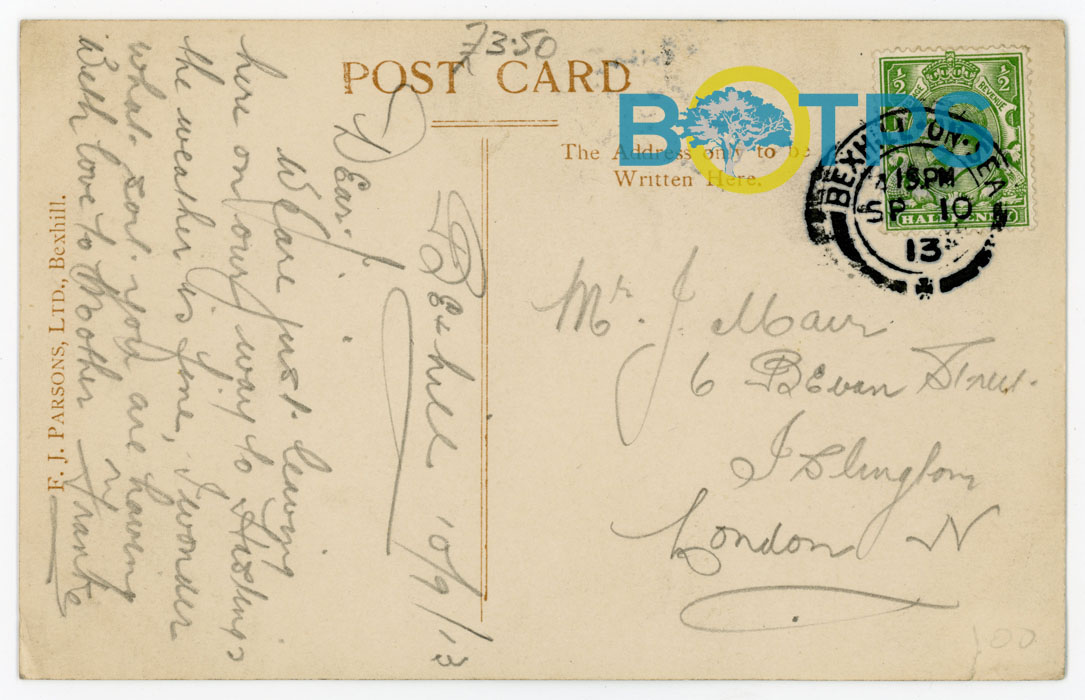 73.50
POST CARD
The Address only to be
Written Here.
BOTPS
½ ½
REVENUE
HALFPENNY
BEXHILL-ON-SEA
15 PM
SP 10
13
Bexhill 10/9/13
Dear J.
We are just leaving
here on our way to Hastings
the weather is fine, I wonder
what sort you are having
With love to Mother
Frank
F. J. PARSONS, LTD., Bexhill.
Mr. J. Mair
6 Bevan Street.
Islington
London N
100